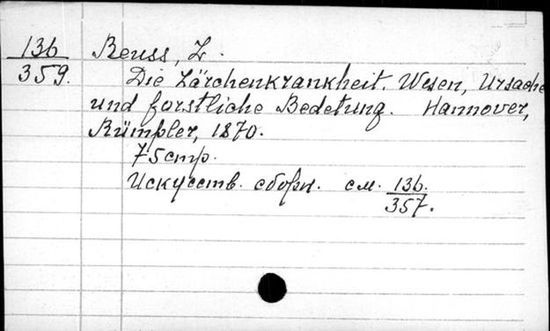 136 Reuss, L.
359. Die Lärchenkrankheit. Wesen, Ursache
und forstliche Bedetung. Hannover,
Rümpler, 1870.
75 стр.
Искусств. сборн. см. 136.
357.